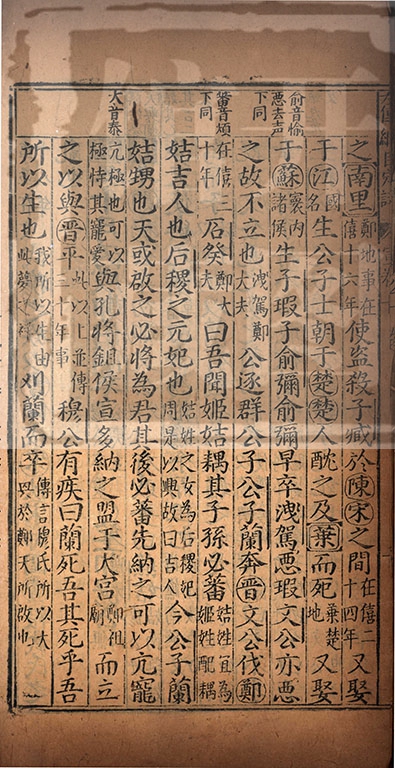 俞音愉
惡去声
下同
蕃音煩
下同
大音泰
之南里鄭地事在僖十六年使盗殺子臧於陳宋之間在僖二十四年又娶
于江國名生公子士朝于楚楚人酖之及葉而死葉楚地又娶
于蘇寰内諸侯生子瑕子俞彌俞彌早卒洩駕惡瑕文公亦惡
之故不立也洩駕鄭大夫公逐群公子公子蘭奔晉文公伐鄭
在僖三十年石癸鄭大夫曰吾聞姬姞耦其子孫必蕃姞姓宜為姬姓配耦
姞吉人也后稷之元妃也姞姓之女為后稷妃周是以興故曰吉人今公子蘭
姞甥也天或啟之必將為君其後必蕃先納之可以亢寵
亢極也可以極恃其寵愛與孔將鉏侯宣多納之盟于大宮鄭祖廟而立
之以與晉平此以上並傳三十年事穆公有疾曰蘭死吾其死乎吾
所以生也我所以生由此夢之祥刈蘭而卒傳言穆氏所以大興於鄭天所啟也